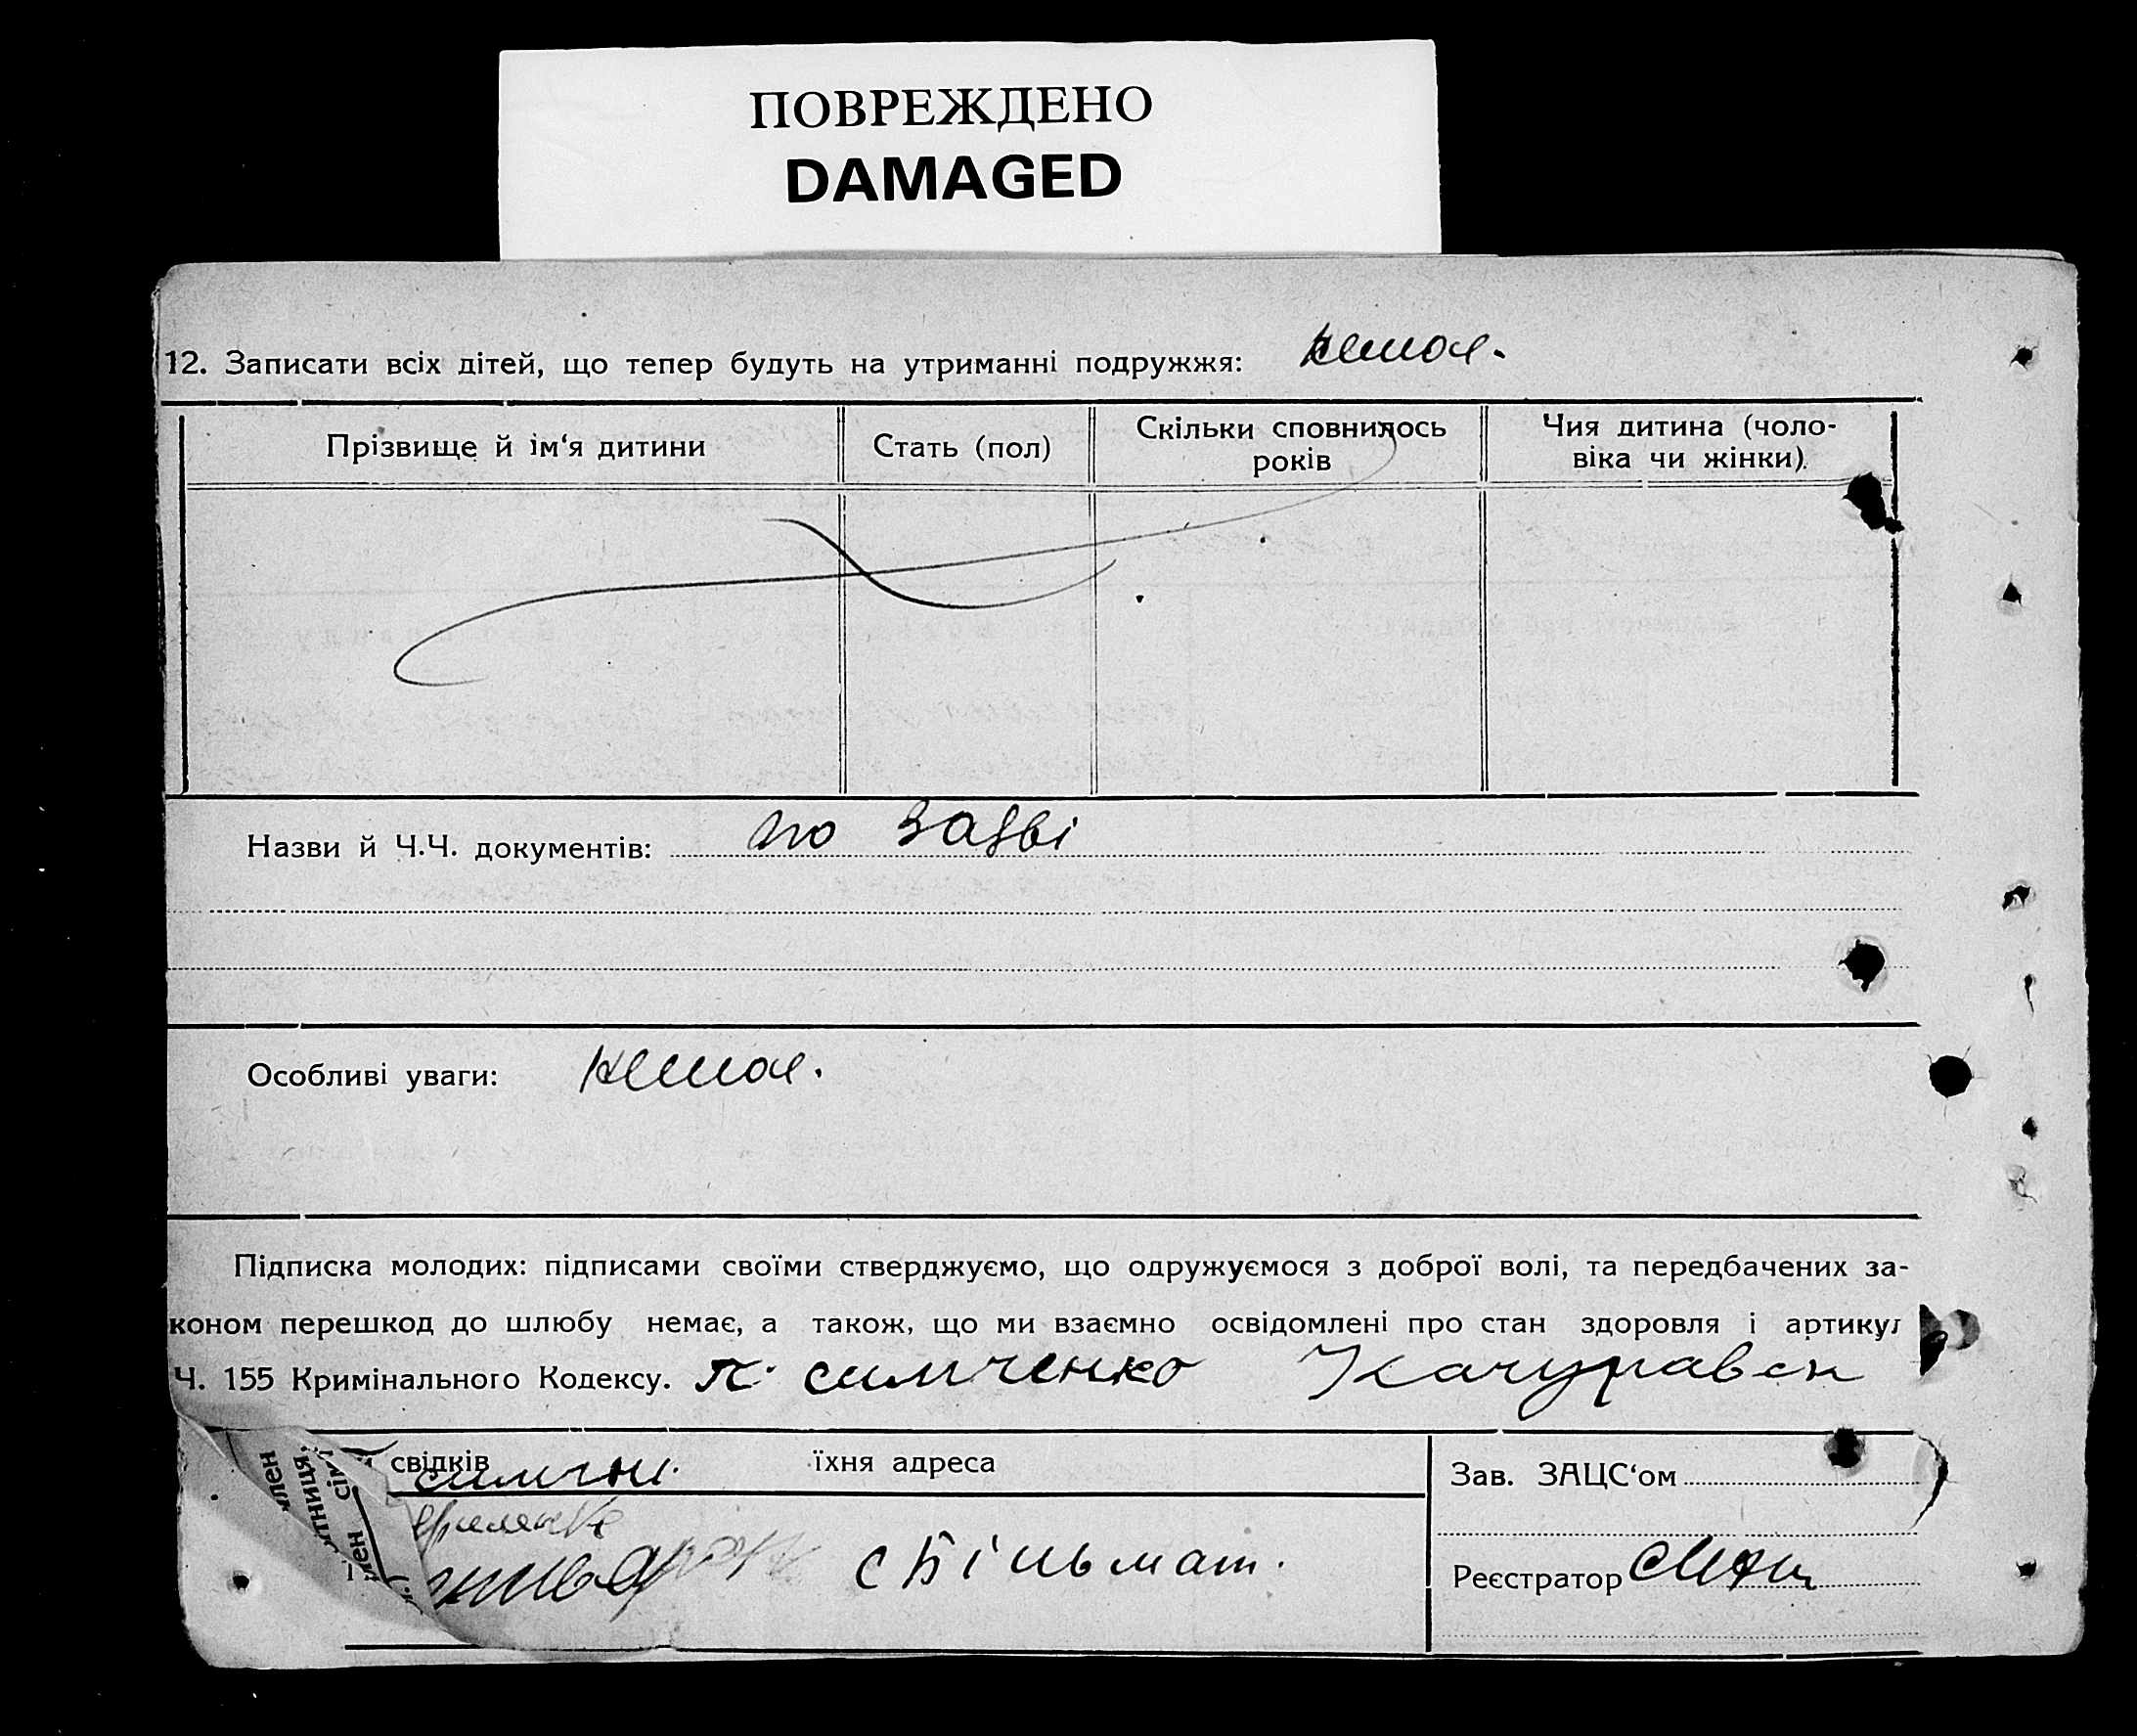 ПОВРЕЖДЕНО
DAMAGED
12. Записати всіх дітей, що тепер будуть на утриманні подружжя: немає.
Прізвище й ім‘я дитини
Стать (пол)
Скільки сповнилось
років
Чия дитина (чоло-
віка чи жінки).
Назви й Ч.Ч. документів: по заяві
Особливі уваги: немає.
Підписка молодих: підписами своїми стверджуємо, що одружуємося з доброї волі, та передбачених за-
коном перешкод до шлюбу немає, а також, що ми взаємно освідомлені про стан здоровля і артикул
Ч. 155 Кримінального Кодексу. П. симченко
свідків
їхня адреса
Зав. ЗАЦС‘ом
Реєстратор